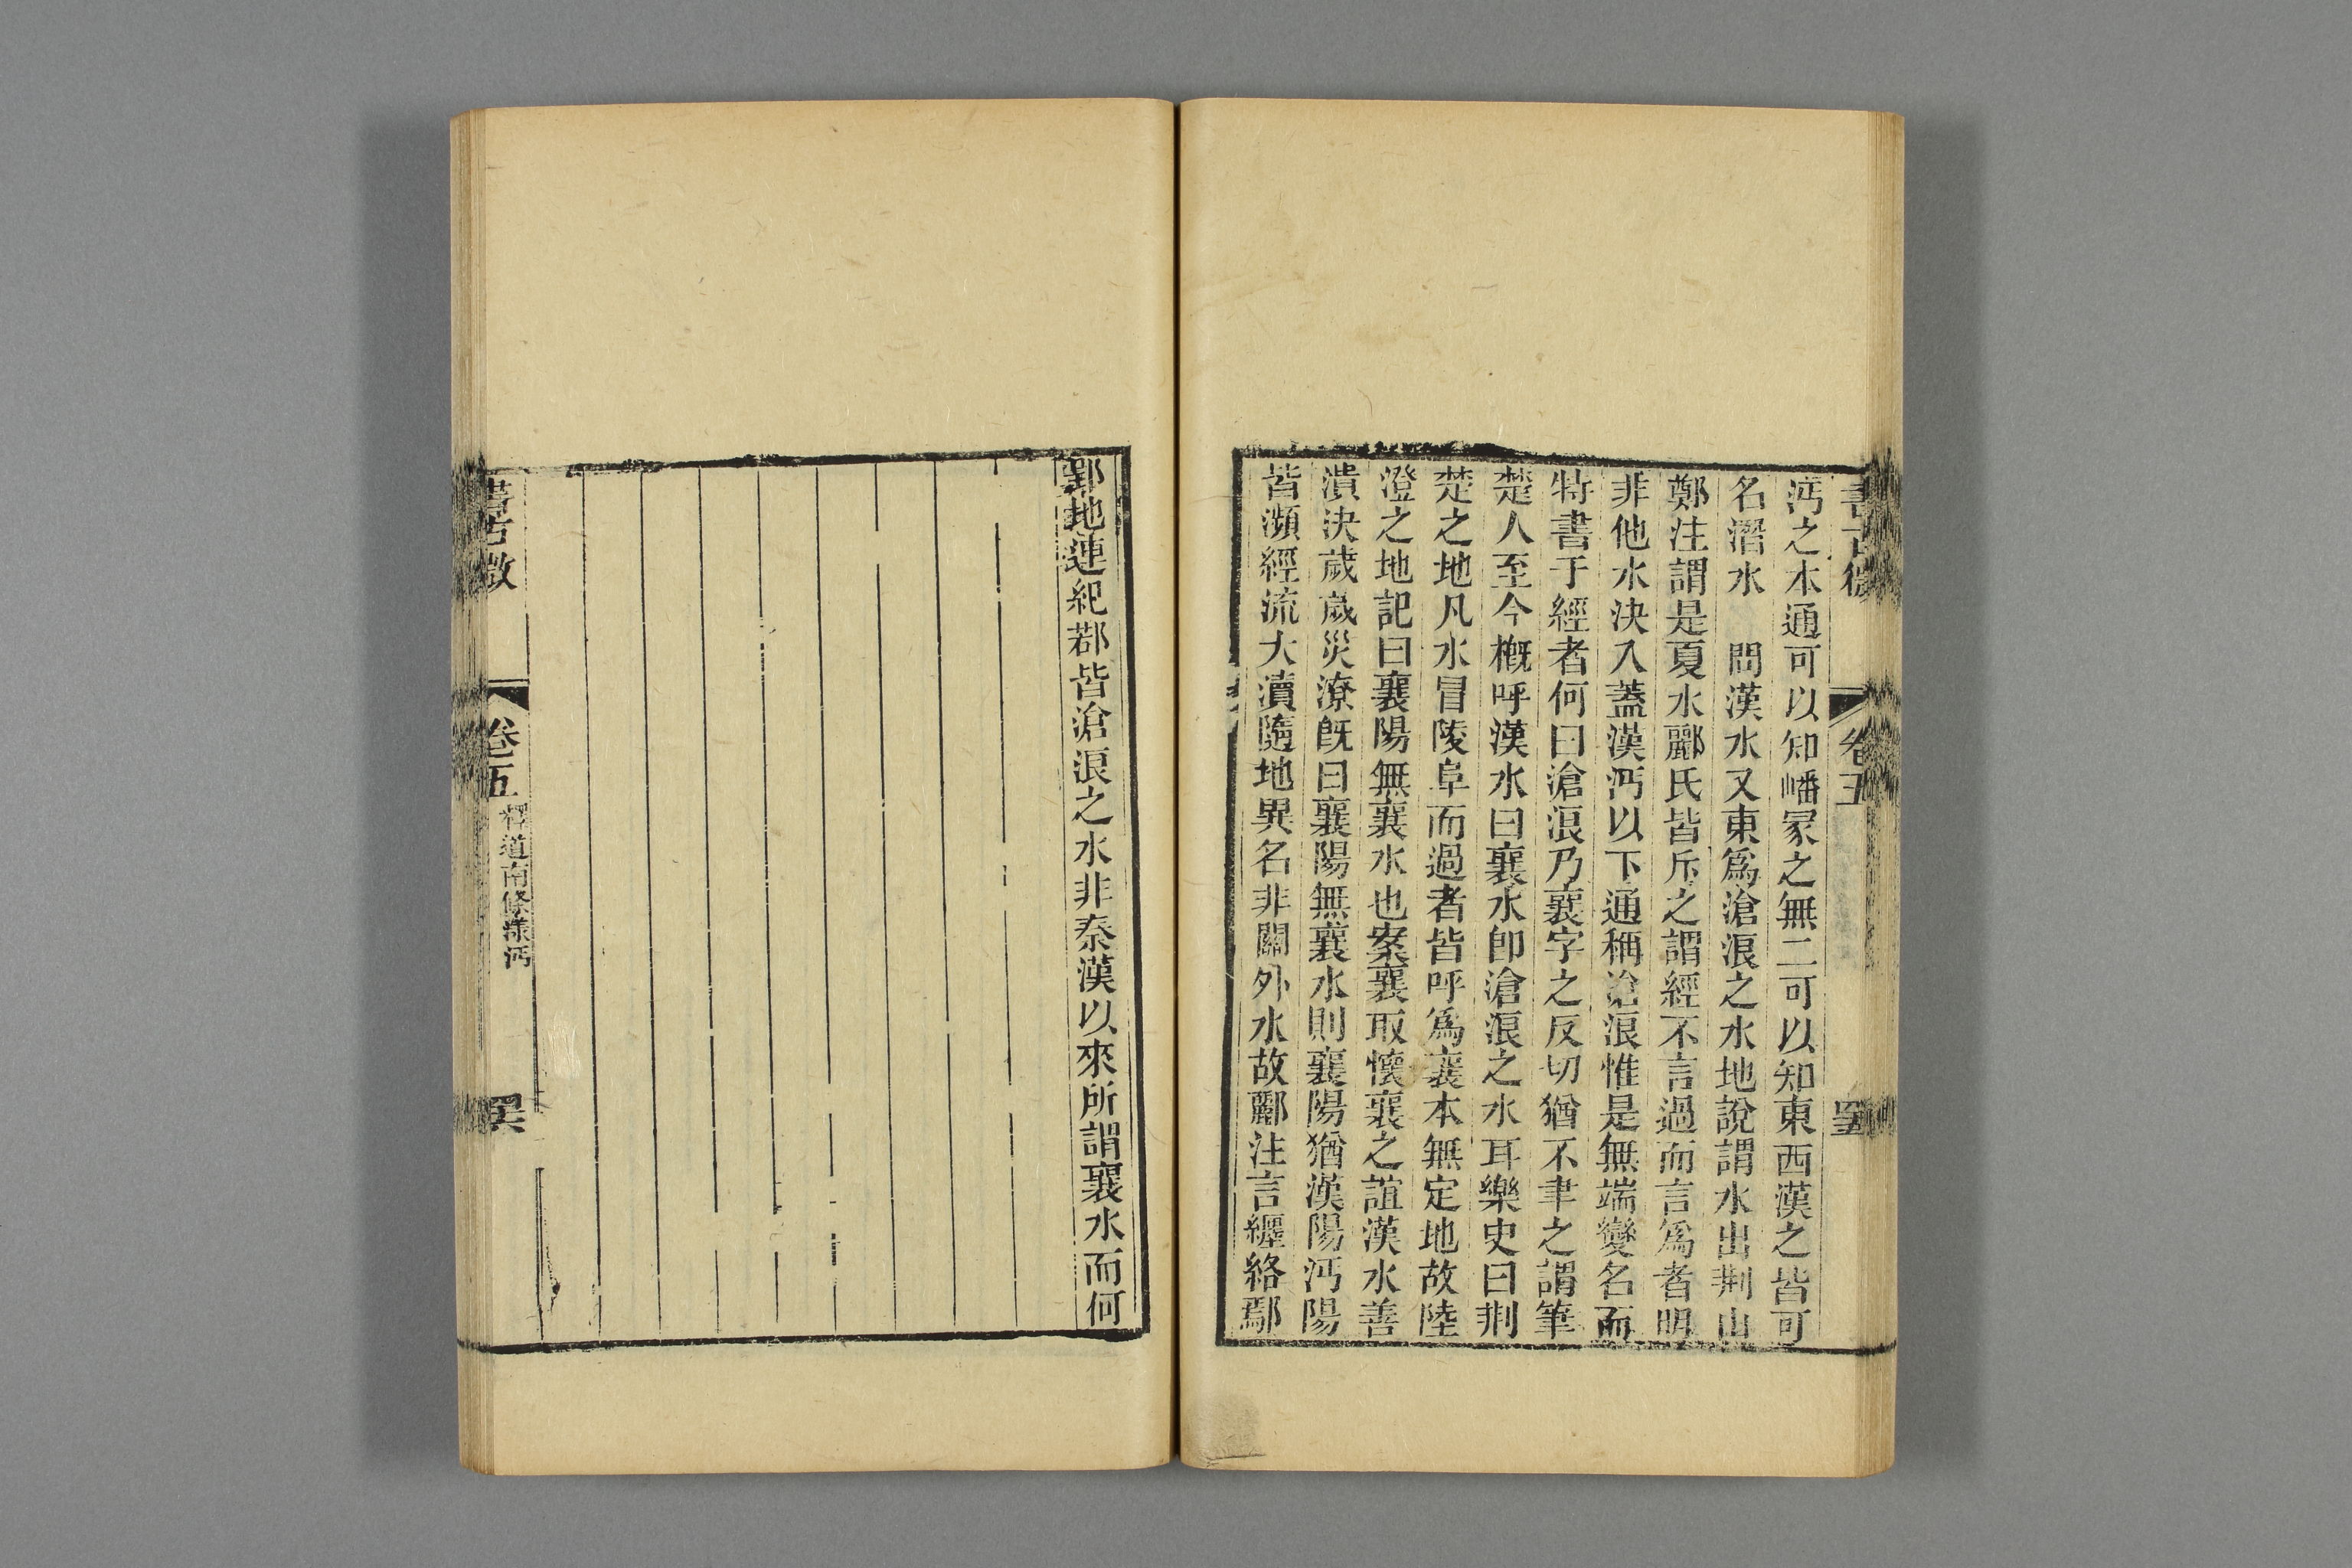 書古微 卷五 
沔之本通可以知嶓冢之無二可以知東西漢之皆可
名潛水 問漢水又東爲滄浪之水地說謂水出荆山
鄭注謂是夏水酈氏皆斥之謂經不言過而言爲者明
非他水決入蓋漢沔以下通稱滄浪惟是無端變名而
特書于經者何曰滄浪乃襄字之反切猶不聿之謂筆
楚人至今槪呼漢水曰襄水卽滄浪之水耳樂史曰荆
楚之地凡水冒陵阜而過者皆呼爲襄本無定地故陸
澄之地記曰襄陽無襄水也案襄取懷襄之誼漢水善
潰決歲歲災潦旣曰襄陽無襄水則襄陽猶漢陽沔陽
皆瀕經流大瀆隨地異名非關外水故酈注言纒絡鄢
郢地連紀鄀皆滄浪之水非秦漢以來所謂襄水而何
書古微 卷五 釋道南條漾沔